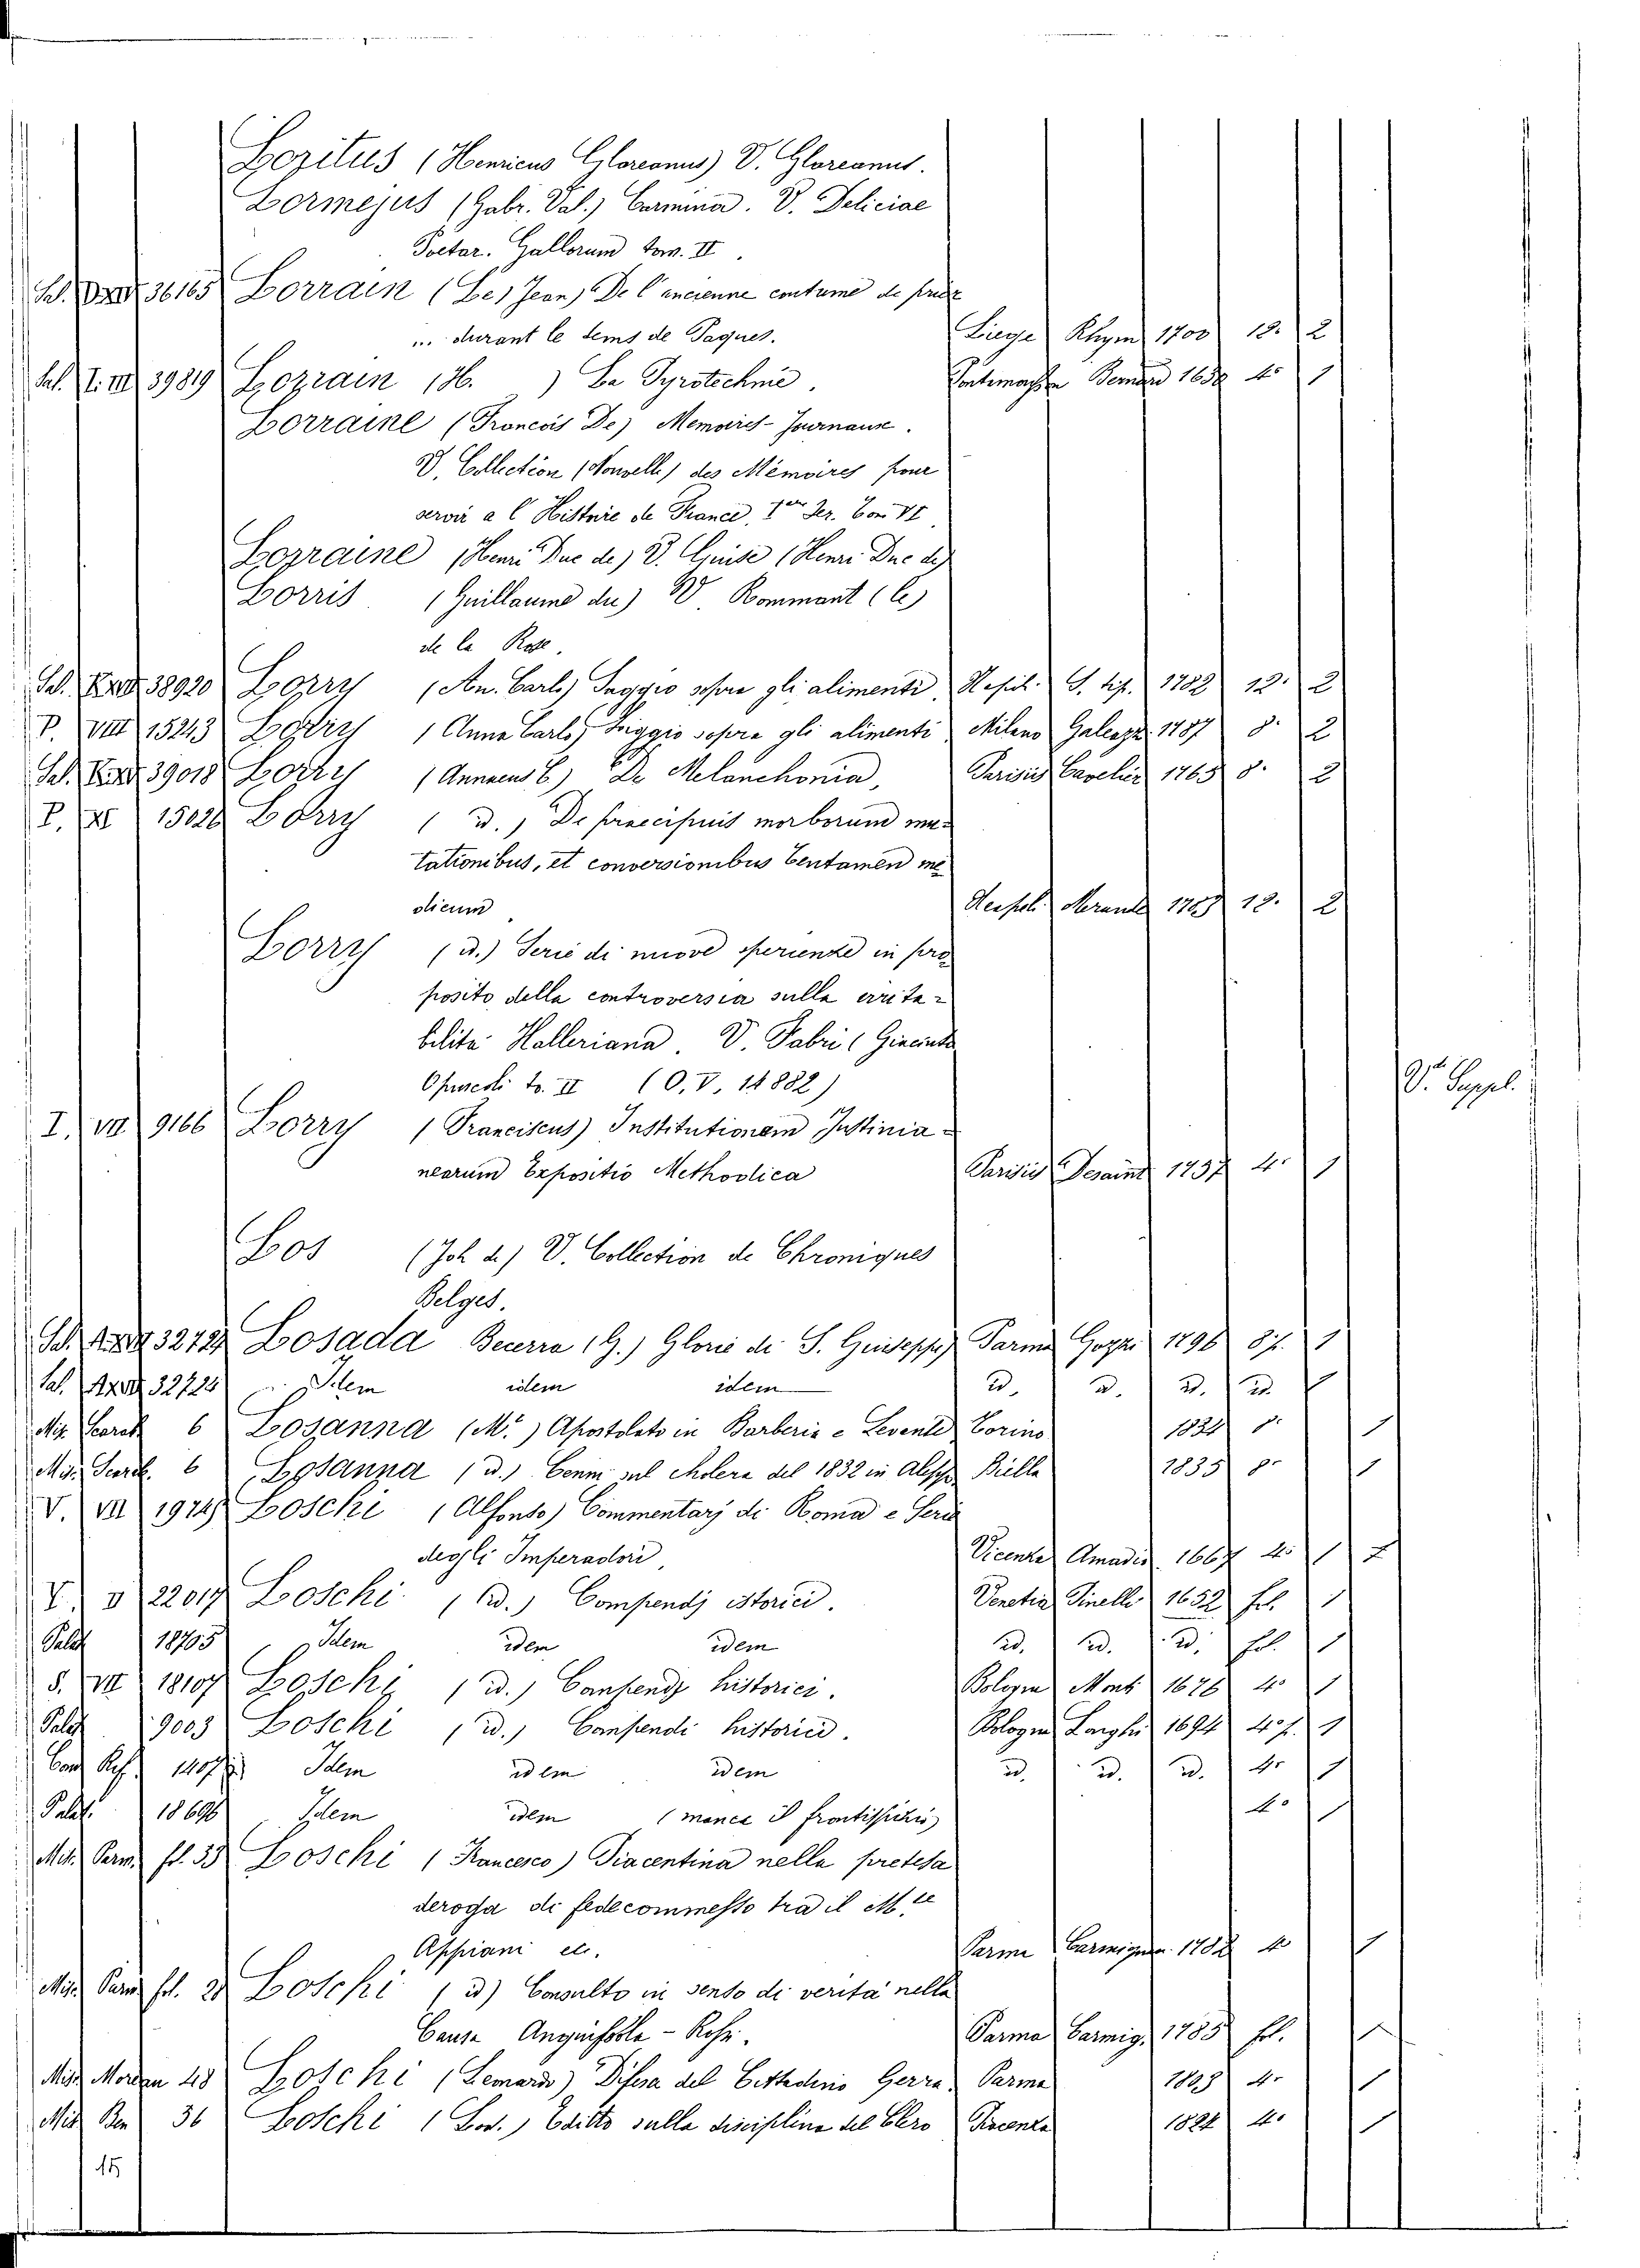 Loritus (Henricus Glareanus) V. Glareanus.
Lormejus (Gabr. Val.) Carmina. V. Deliciae
Poetar. Gallorum tom. II.
Sal. 36165 Lorrain (Le) Jean) De l'ancienne coutume de prier
... durant le tems de Paques. Liege 1700 12. 2
Sal. I. III 39819 Lorrain (H. ) La Pyrotechnie. Pontemasson Bernard 4° 1
Lorraine (Francois De) Memoires-Journaux.
V. Collection (Nouvelle) des Mémoires pour
servir a l'Histoire de France, 1er Ser. Tom VI
Lorraine (Henri Duc de) V. Guise (Henri Duc de)
Lorris (Guillaume du) V. Rommant (le)
de la Rose.
Sal. 38920 Lorry (An. Carlo) Saggio sopra gli alimenti Neapol. S. tip. 1782 12. 2
P. VIII 15243 Lorry (Anna Carlo) Saggio sopra gli alimenti Milano Galeazzi 1787 8. 2
Sal. 39018 Lorry (Annaeus C) De Melanchonia, Parisiis Cavelier 1765 8. 2
P. XI 15026 Lorry (id.) De praecipuis morborum mu-
tationibus, et conversionibus tentamen me
dicum Neapol. Merande 1789 12. 2
Lorry (id.) Serie di nuove sperienze in pro
posito della controversia sulla irrita-
bilita Halleriana. V. Fabri (Giacinto
Opuscoli to. II (O. V. 14882)
V. Suppl.
I. VII 9166 Lorry (Franciscus) Institutionem Justinia-
nearum Expositio Methodica Parisiis Desaint 1757 4. 1
Los (Joh de) V. Collection de Chroniques
Belges.
Sal. 32727 Losada Becerra (G.) Glorie di S. Giuseppe Parma Gozzi 1796 8 f. 1
Sal. 32728 Idem idem idem id. id. id. id. 1
Mis. Scarab 6 Losanna (M.) Apostolato in Barberia e Levante Torino 1821 8. 1
Mis. Scarab. 6 Losanna (id.) Cenni sul cholera del 1832 in Aleppo Biella 1835 8. 1
V. VII 19749 Loschi (Alfonso) Commentarj di Roma e Serie
degli Imperadori, Vicenza Amadio 1667 4. 1
V. V 22017 Loschi (id.) Compendj istorici. Venetia Pinelli 1652 fol. 1
Palat 18705 Idem idem idem id. id. id. fol. 1
S. VII 18107 Loschi (id.) Compendj historici. Bologna Monti 1676 4. 1
Palat 9003 Loschi (id.) Compendi historici. Bologna Longhi 1694 4° f. 1
Con Ref. Idem idem idem id. id. id. 4. 1
Palat. 18696 Idem idem (manca il frontispizio) 4. 1
Mis. Parm. fol. 33 Loschi (Francesco) Piacentina nella pretesa
deroga di fedecommesso tra il M.se
Appiani etc. Parma Carmignan. 1782 4 1
Mis. Parm fol. 21 Loschi (id) Consulto in senso di verità nella
Causa Anguissola - Parma Carmig. 1785 fol. 1
Mis. 48 Loschi (Lemardo) Difesa del Cittadino Gerra Parma 4. 1
Mis. Ben 36 Loschi (Lod.) Editto sulla disciplina del Clero Piacenza 1824 4. 1
15